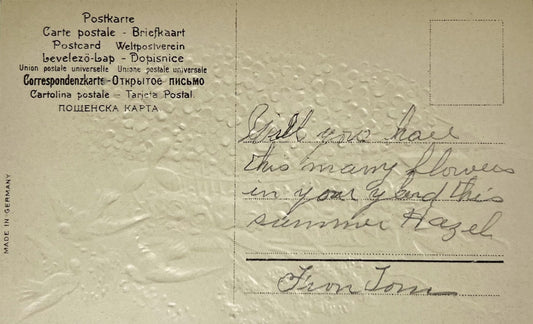 Postkarte
Carte postale - Briefkaart
Postcard Weltpostverein
Levelező-Lap - Dopisnice
Union postale universelle Unione postale universale
Correspondenzkarte - Открытое письмо
Cartolina postale - Tarjeta Postal
ПОЩЕНСКА КАРТА
MADE IN GERMANY
Will you have
this many flowers
in your yard this
summer Hazel
From Tom